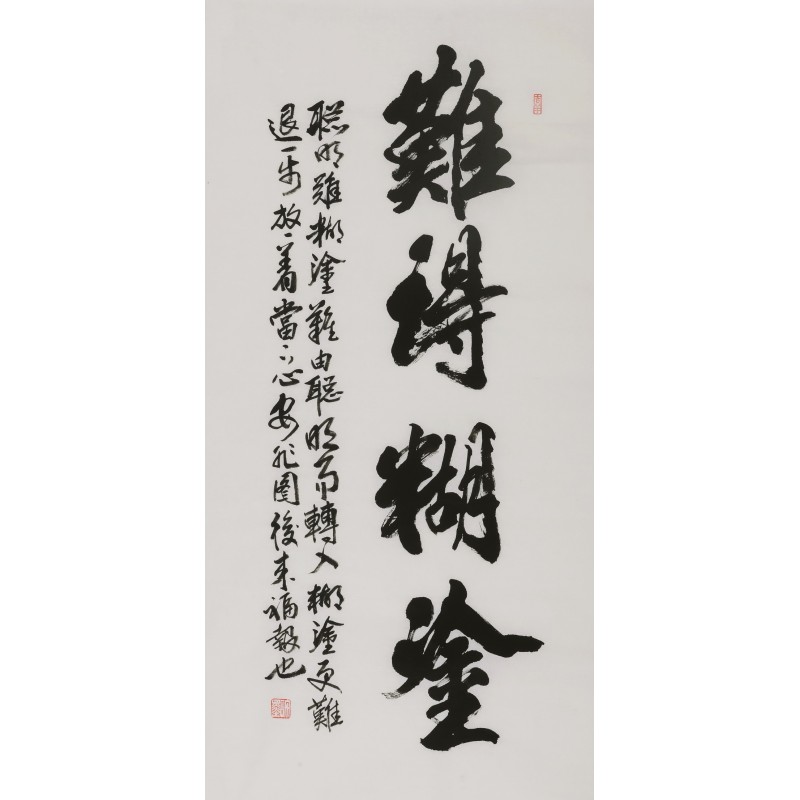 難得糊塗
聡明難糊塗難由聡明而轉入糊塗更難
退一步放一著當下心安非圖後來福報也